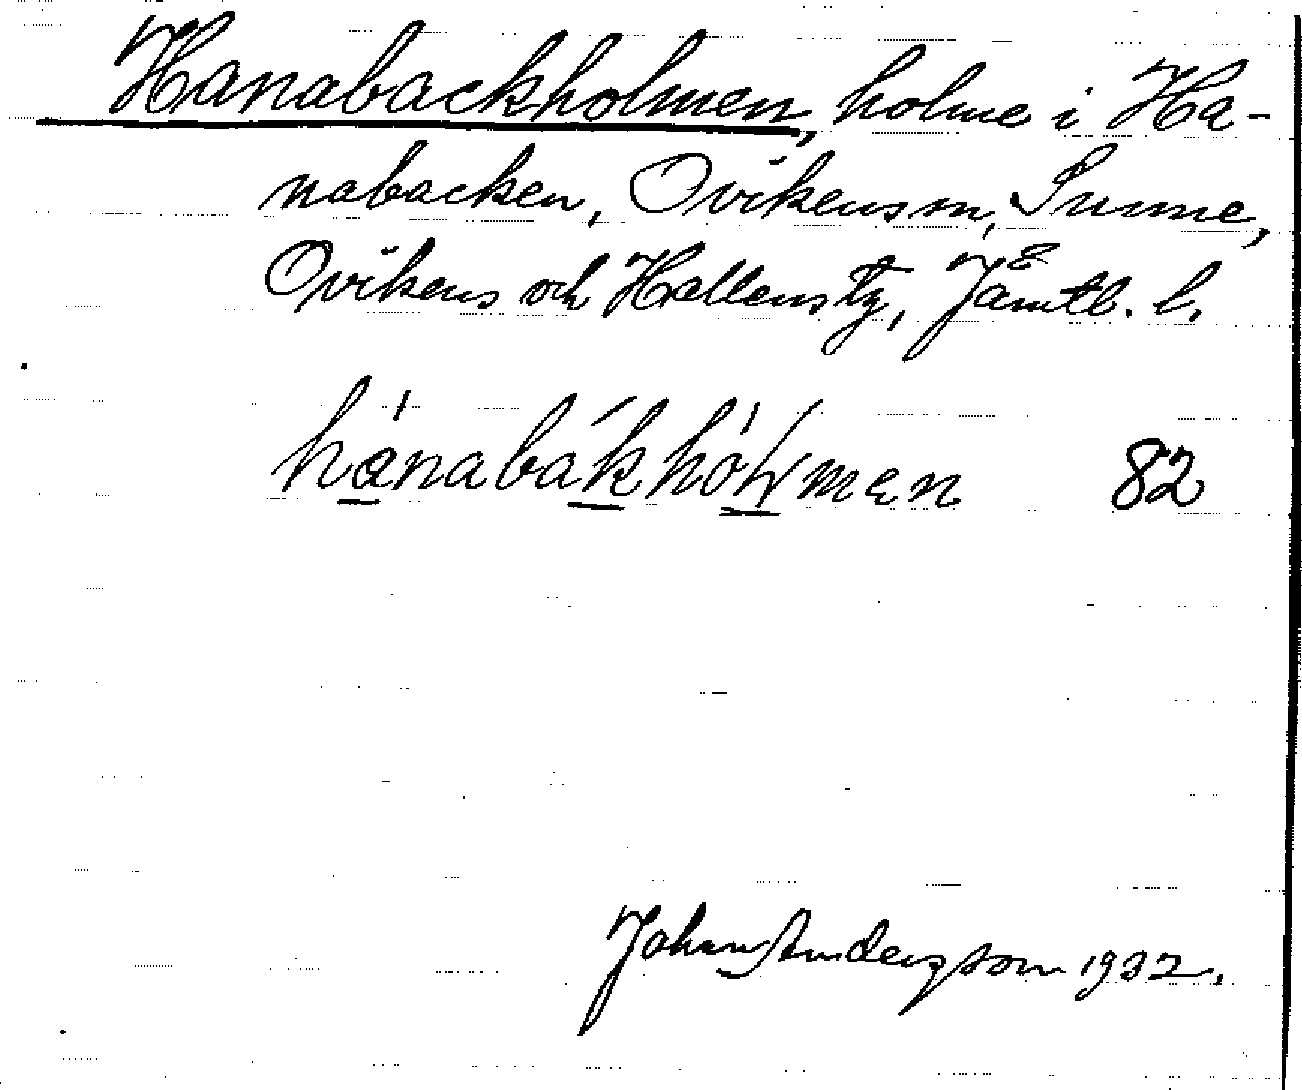 Hanabackholmen, holme i Ha-
nabacken, Ovikens sn, Sunne,
Ovikens och Hallens tg, Jämtl. l.
hanabakhol̥men 82
Johan Anderson 1932.